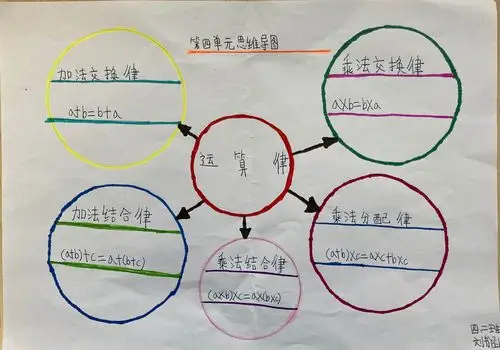 第四单元思维导图
加法交换律
a+b=b+a
乘法交换律
a×b=b×a
运算律
加法结合律
(a+b)+c=a+(b+c)
乘法结合律
(a×b)×c=a×(b×c)
乘法分配律
(a+b)×c=a×c+b×c
四.二班